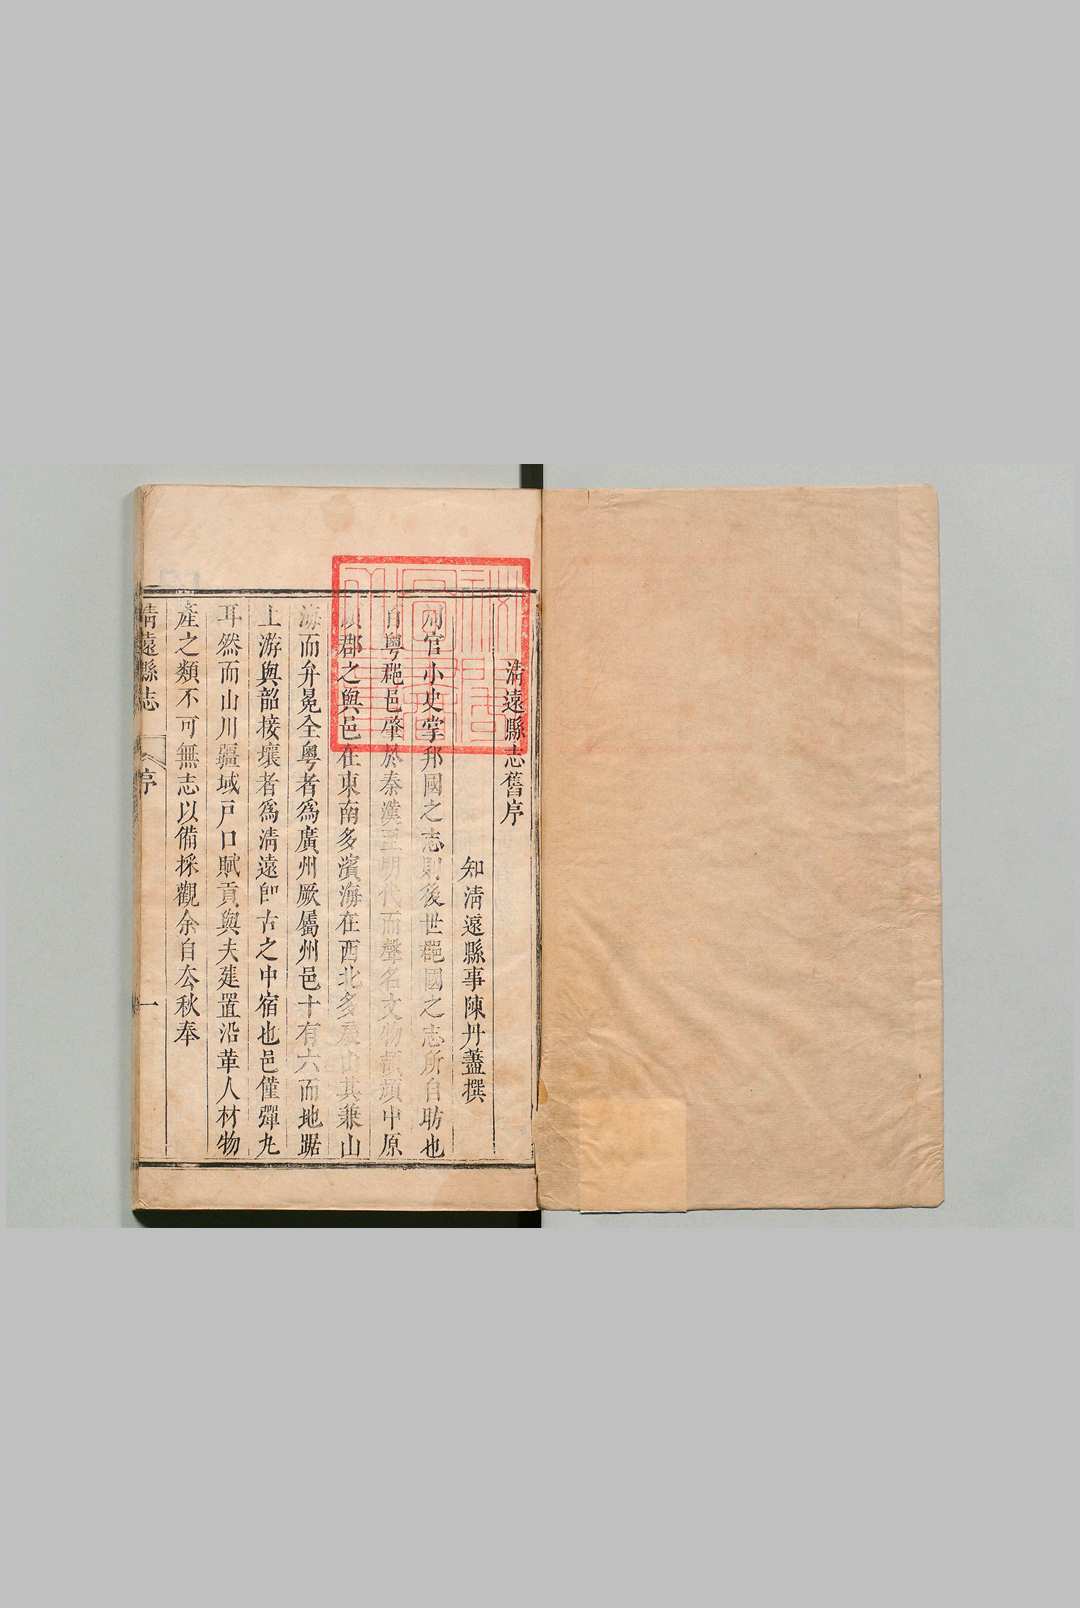 清遠縣志舊序
知清遠縣事陳丹藎撰
周官小史掌邦國之志則後世郡國之志所自昉也
自粤郡邑肇於秦漢至明代而聲名文物頡頏中原
郡之輿邑在東南多濱海在西北多於山其兼山
海而弁冕全粤者爲廣州厥屬州邑十有六而地踞
上游與韶接壤者爲清遠卽古之中宿也邑僅彈丸
耳然而山川疆域戸口賦貢與夫建置沿革人材物
產之類不可無志以備採觀余自去秋奉
清遠縣志 序 一